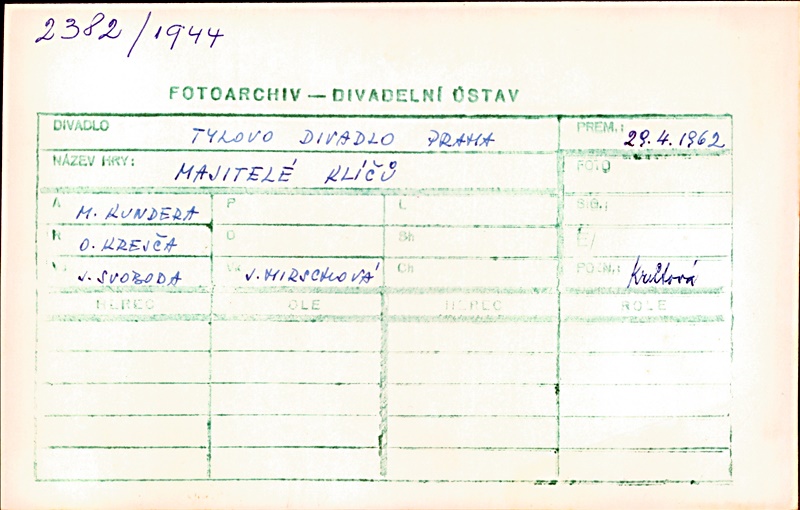 2382/1944
FOTOARCHIV — DIVADELNÍ ÚSTAV
DIVADLO TYLOVO DIVADLO PRAHA PREM.: 29.4.1962
NÁZEV HRY: MAJITELÉ KLÍČŮ FOTO
A M. KUNDERA P L SIG.:
R O. KREJČA O Sh Č/
J. SVOBODA J. HIRSCHOVÁ Ch POZN.:
HEREC ROLE HEREC ROLE